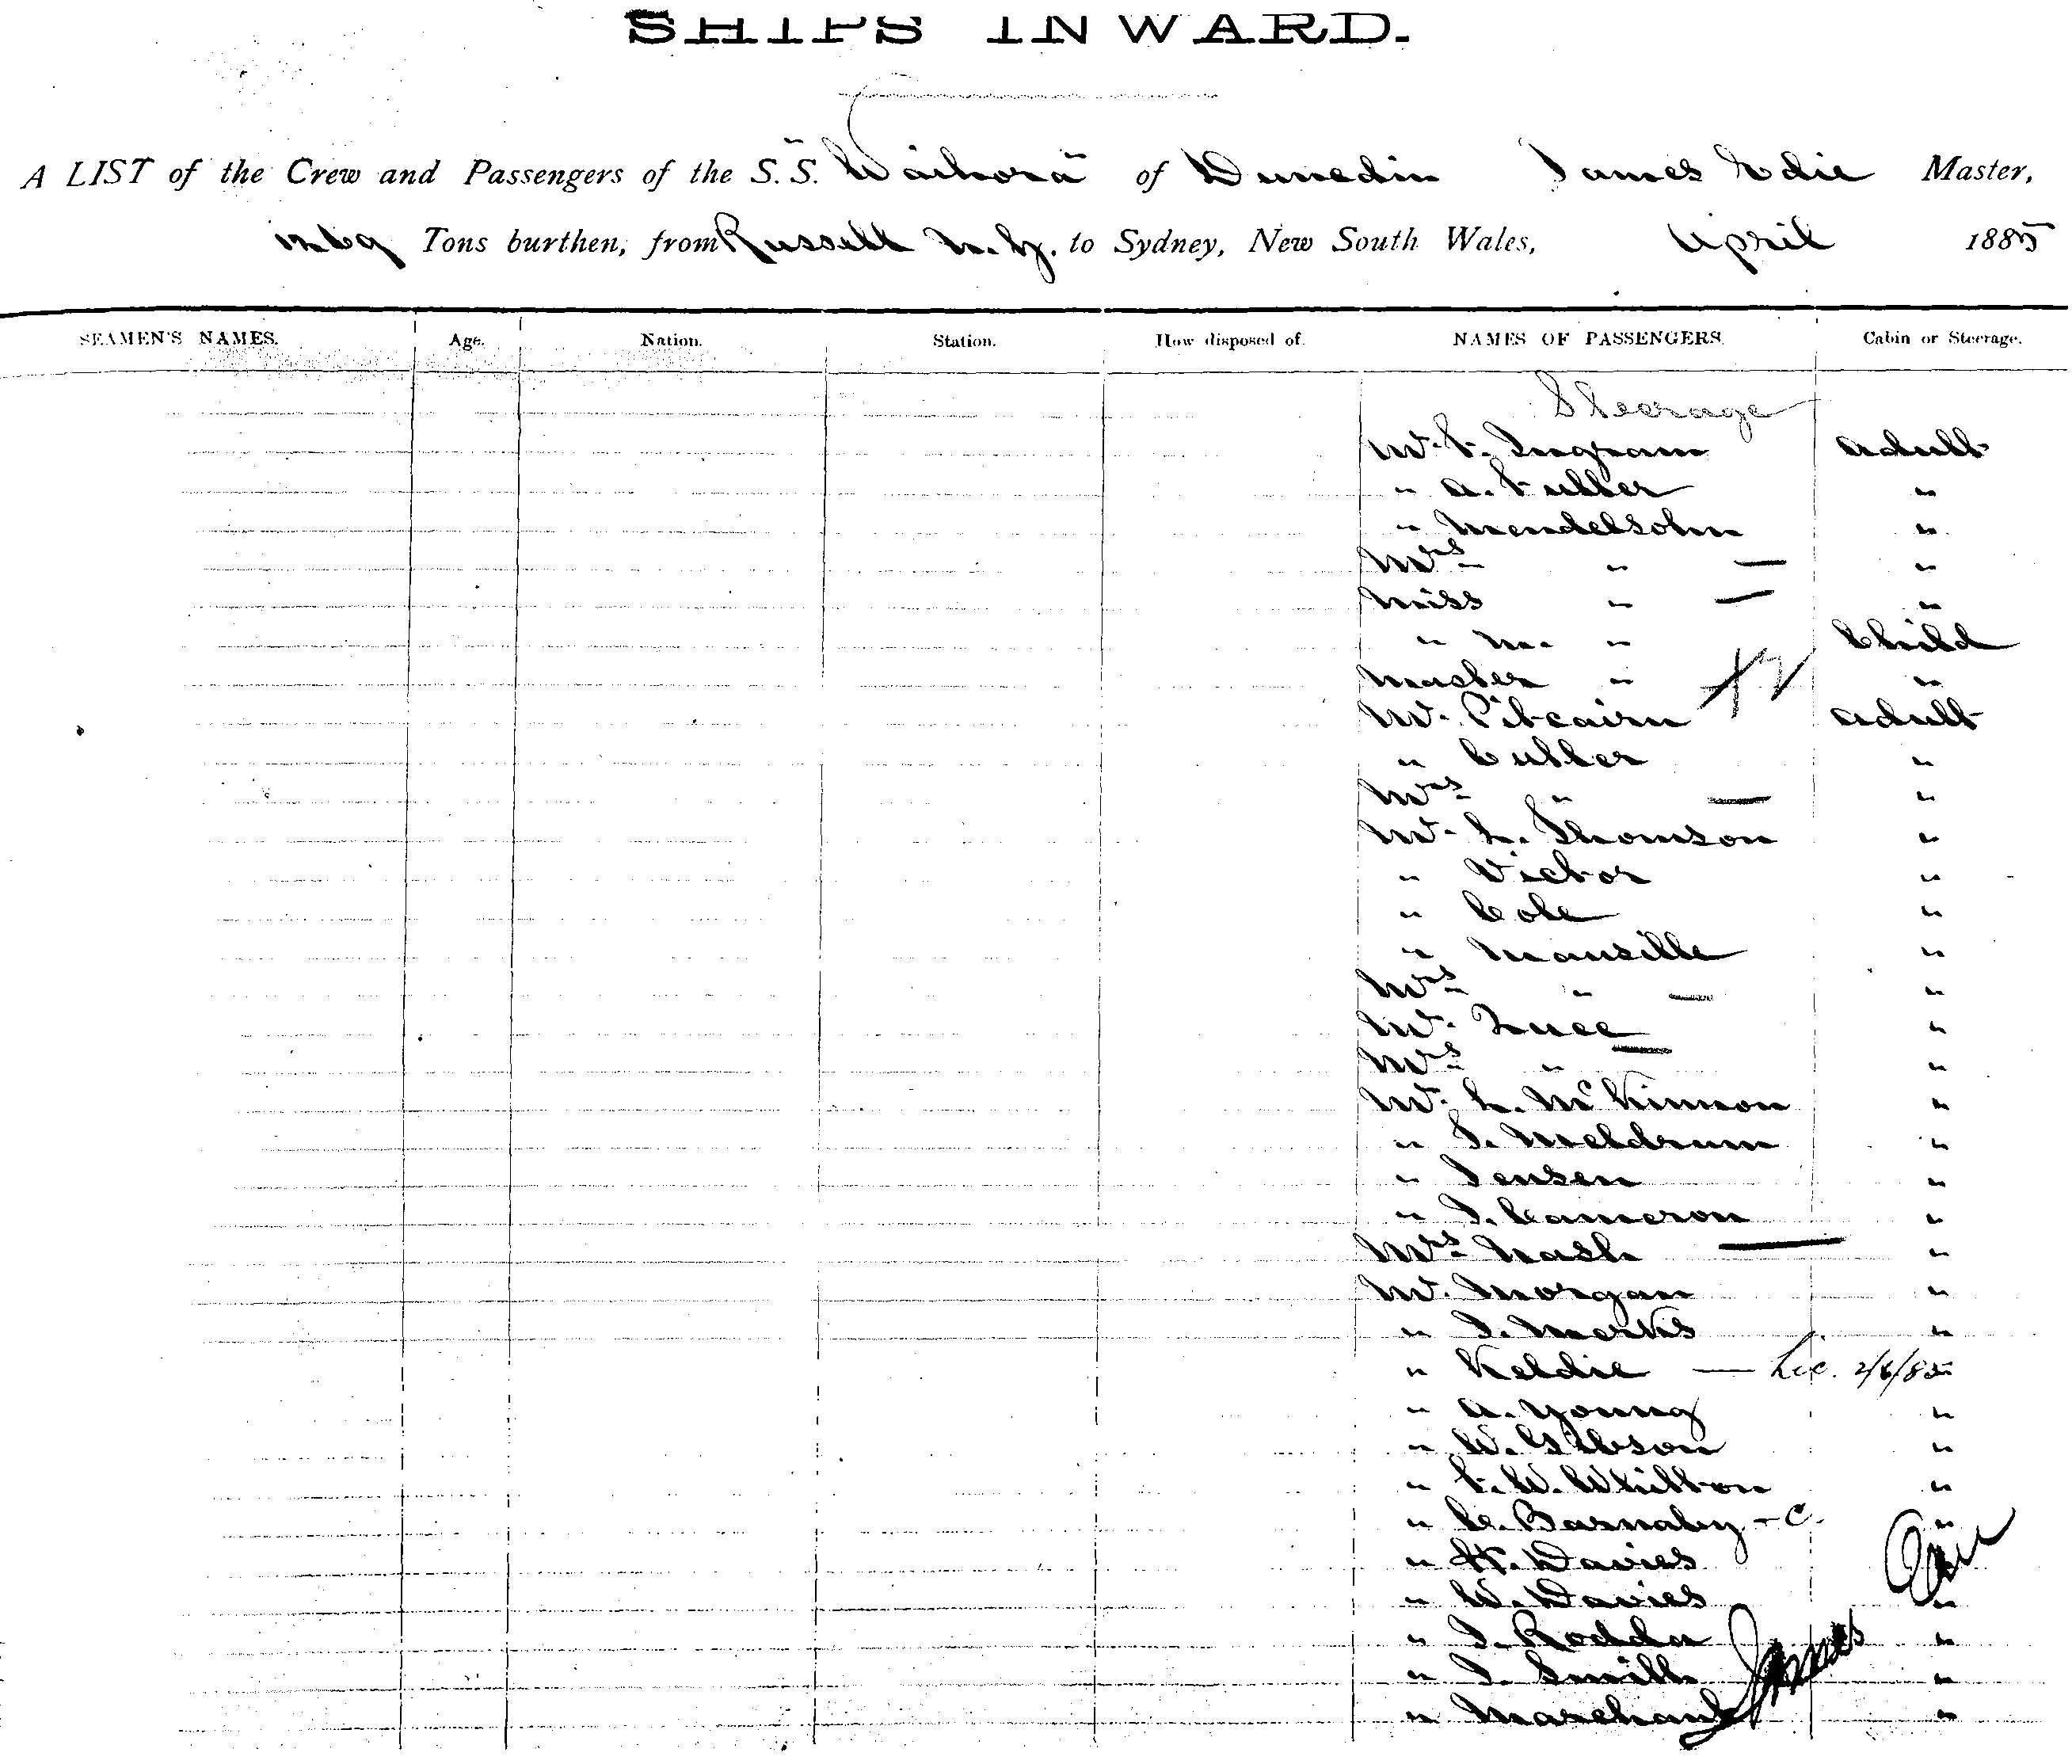 SHIPS INWARD.
A LIST of the Crew and Passengers of the S.S. "Waihora" of Dunedin James Edie Master,
1269 Tons burthen, from Russell N.Z. to Sydney, New South Wales, April 1885
SEAMEN'S NAMES. Age. Nation. Station. How disposed of. NAMES OF PASSENGERS. Cabin or Steerage.
Steerage
Mr. F. Ingram Adult
" A. Fuller "
" Mendelsohn "
Mrs " — "
Miss " — "
" M. " Child
Master " "
Mr. Pitcairn Adult
" Cutler "
Mrs " — "
Mr. L. Thomson "
" Victor "
" Cole "
" Manville "
Mrs " — "
Mr. Luce "
Mrs " — "
Mr. L. McKinnon "
" J. Meldrum "
" Jensen "
" J. Cameron "
Mrs Nash — "
Mr. Morgan "
" J. Marks "
" Keldie — Lic. 2/6/85 "
" A. Young "
" W. Gibson "
" F. W. Whitton "
" C. Barnaby - C. "
" H. Davies "
" W. Davies "
" J. Rodda "
" J. Smith "
" Marchant "
James Edie